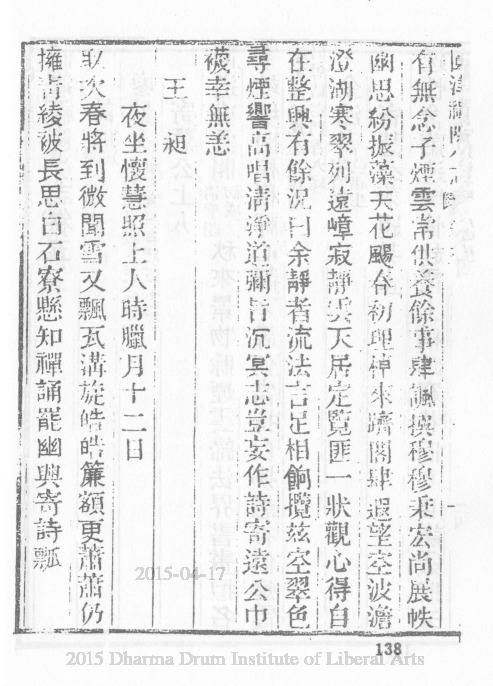 有無念子煙雲常供養餘事肆諷撰穆穆秉宏尚展帙
幽思紛振藻天花颺春初理棹來躋閣肆遐望空波澹
澄湖寒翠列遠嶂寂靜雲天居定覽匪一狀觀心得自
在整興有餘況曰余靜者流法言足相餉攬茲空翠色
尋煙響高唱清淨道彌旨沉冥志豈妄作詩寄遠公巾
襪幸無恙
王昶
夜坐懷慧照上人時臘月十二日
取次春將到微聞雪又飄瓦溝旋皓皓簾額更蕭蕭仍
擁青綾被長思白石寮懸知禪誦罷幽興寄詩瓢
138
2015-04-17
2015 Dharma Drum Institute of Liberal Arts